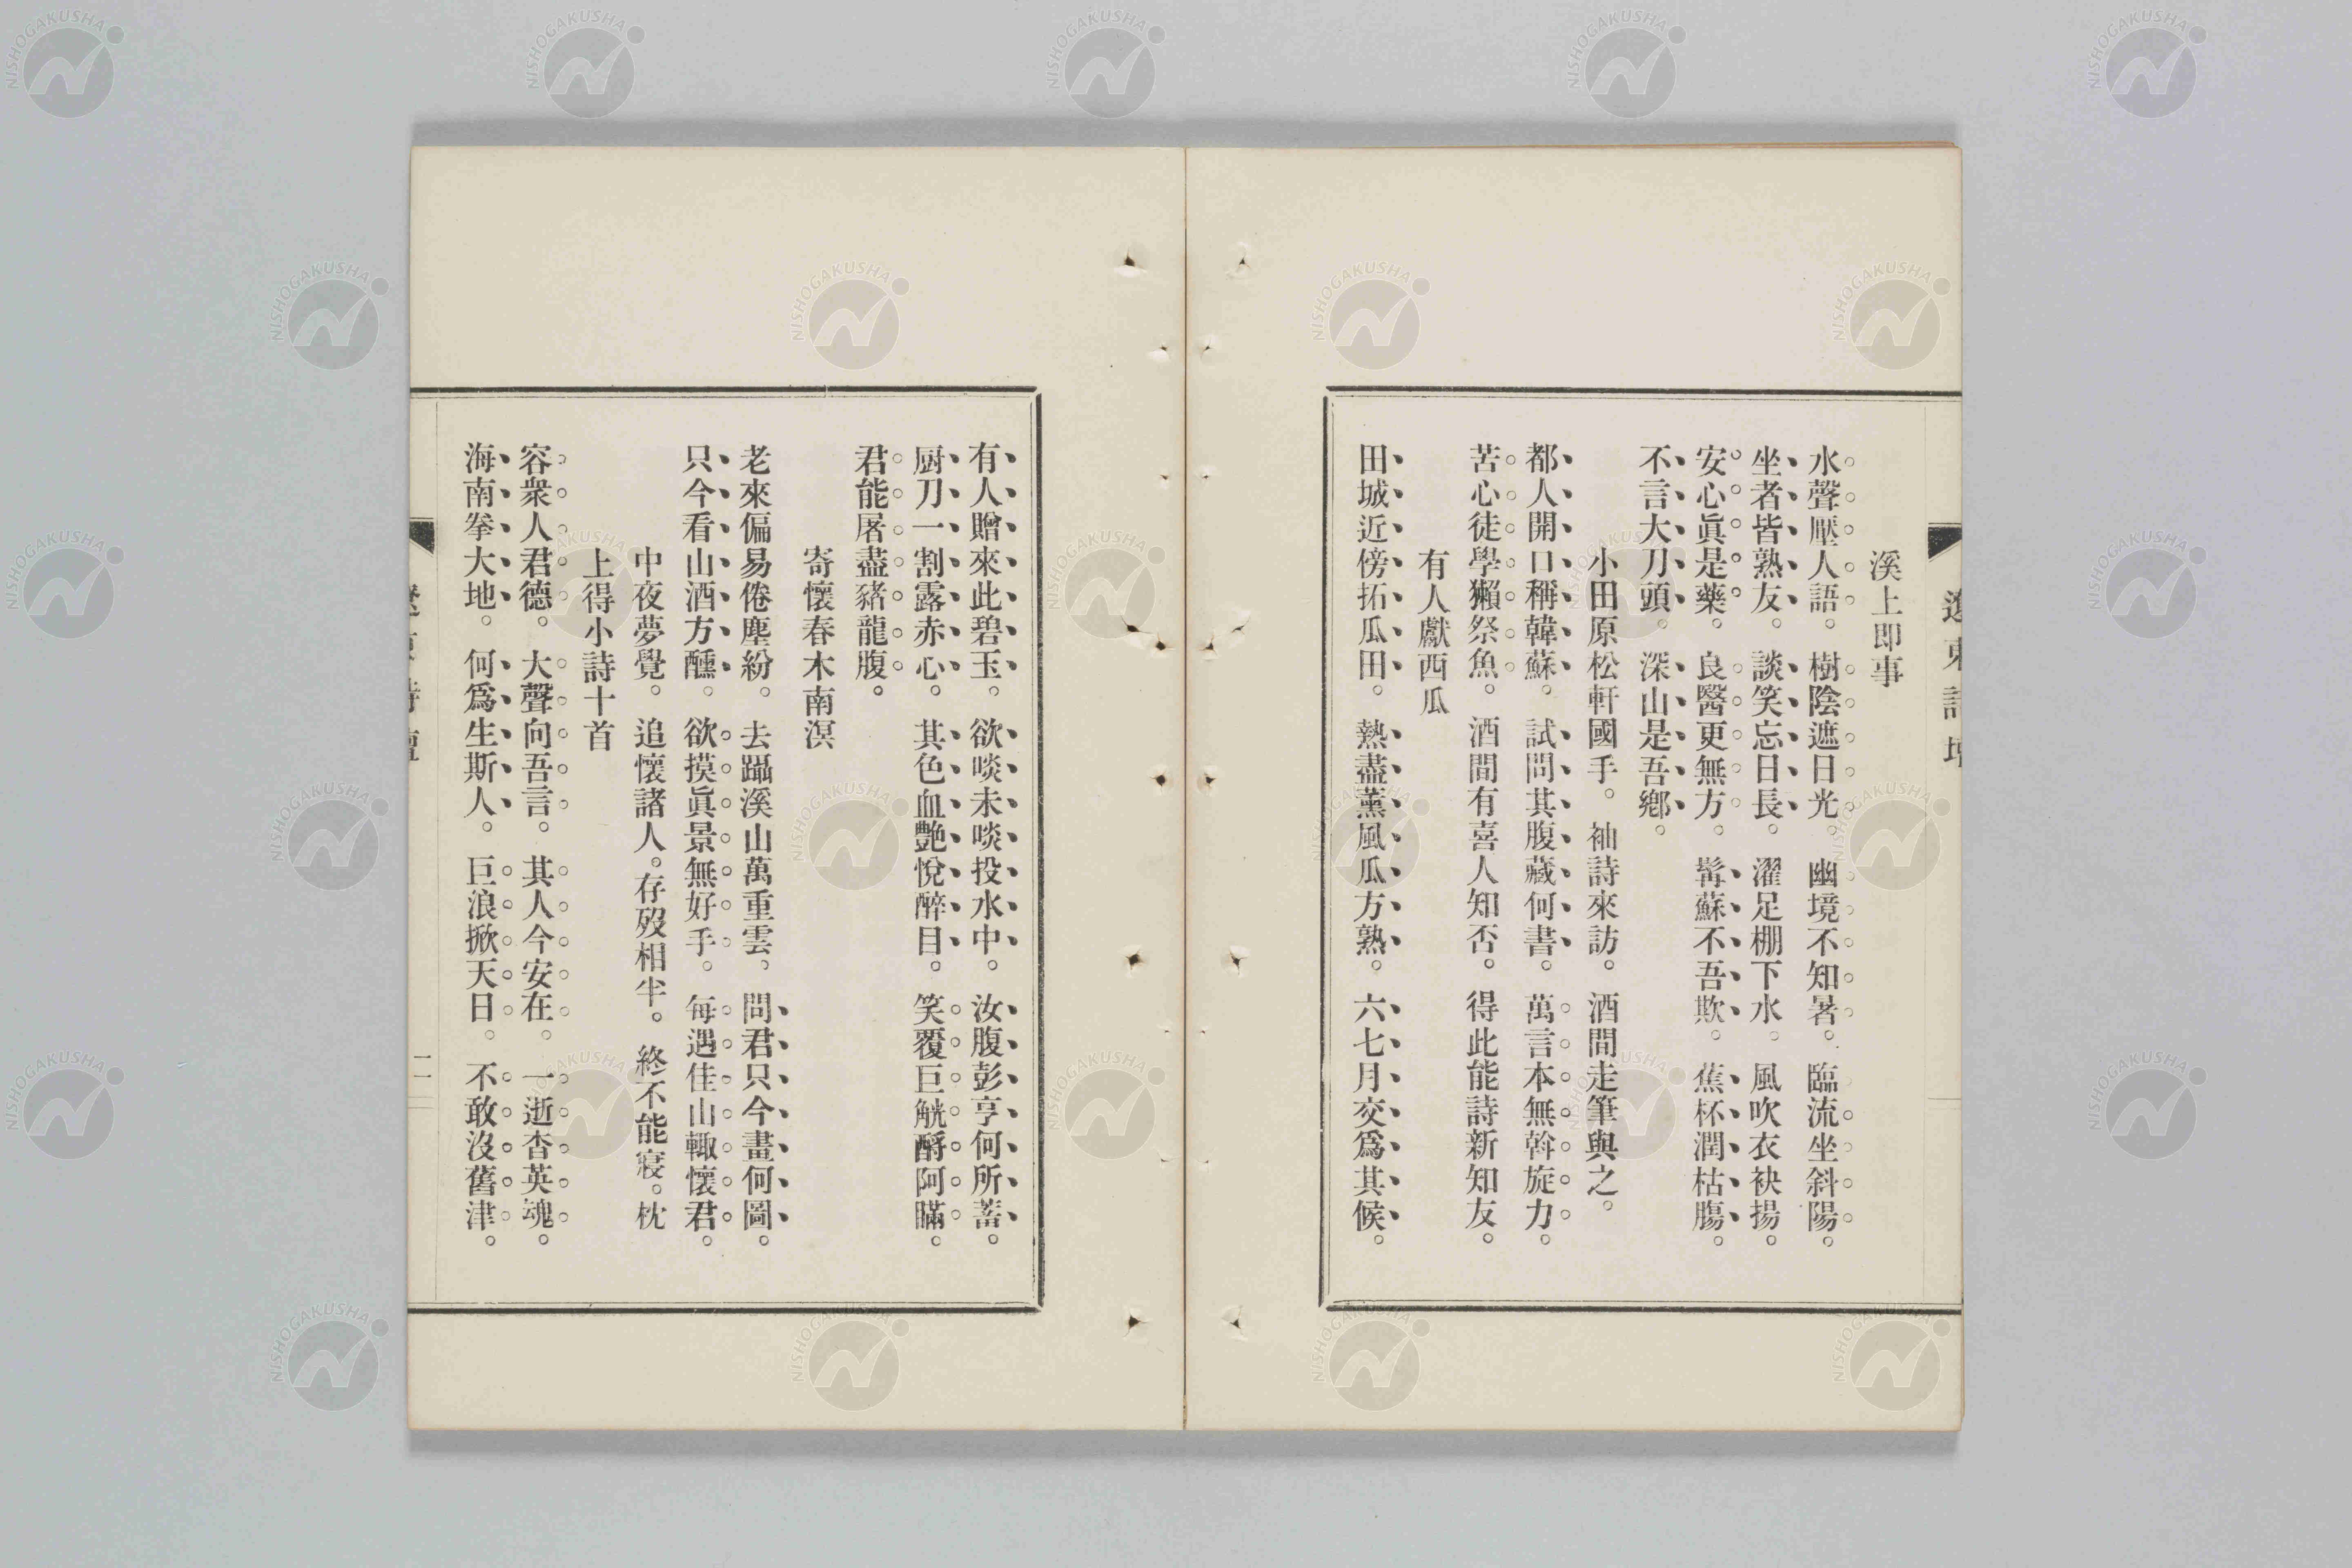 遼東詩壇
溪上即事
水聲壓人語。樹陰遮日光。幽境不知暑。臨流坐斜陽。
坐者皆熟友。談笑忘日長。濯足棚下水。風吹衣袂揚。
安心眞是藥。良醫更無方。髯蘇不吾欺。蕉杯潤枯膓。
不言大刀頭。深山是吾鄕。
小田原松軒國手。袖詩來訪。酒間走筆與之。
都人開口稱韓蘇。試問其腹藏何書。萬言本無斡旋力。
苦心徒學獺祭魚。酒間有喜人知否。得此能詩新知友。
有人獻西瓜
田城近傍拓瓜田。熱盡薰風瓜方熟。六七月交爲其候。
有人贈來此碧玉。欲啖未啖投水中。汝腹彭亨何所蓄。
厨刀一割露赤心。其色血艶悅醉目。笑覆巨觥酹阿瞞。
君能屠盡豬龍腹。
寄懷春木南溟
老來偏易倦塵紛。去躡溪山萬重雲。問君只今畫何圖。
只今看山酒方醺。欲摸眞景無好手。每遇佳山輙懷君。
中夜夢覺。追懷諸人。存歿相半。終不能寢。枕
上得小詩十首
容衆人君德。大聲向吾言。其人今安在。一逝杳英魂。
海南拳大地。何爲生斯人。巨浪掀天日。不敢沒舊津。
二
NISHOGAKUSHA